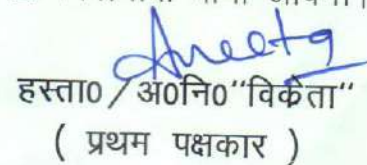 Aneeta
हस्ता0/अ0नि0"विक्रेता"
( प्रथम पक्षकार )